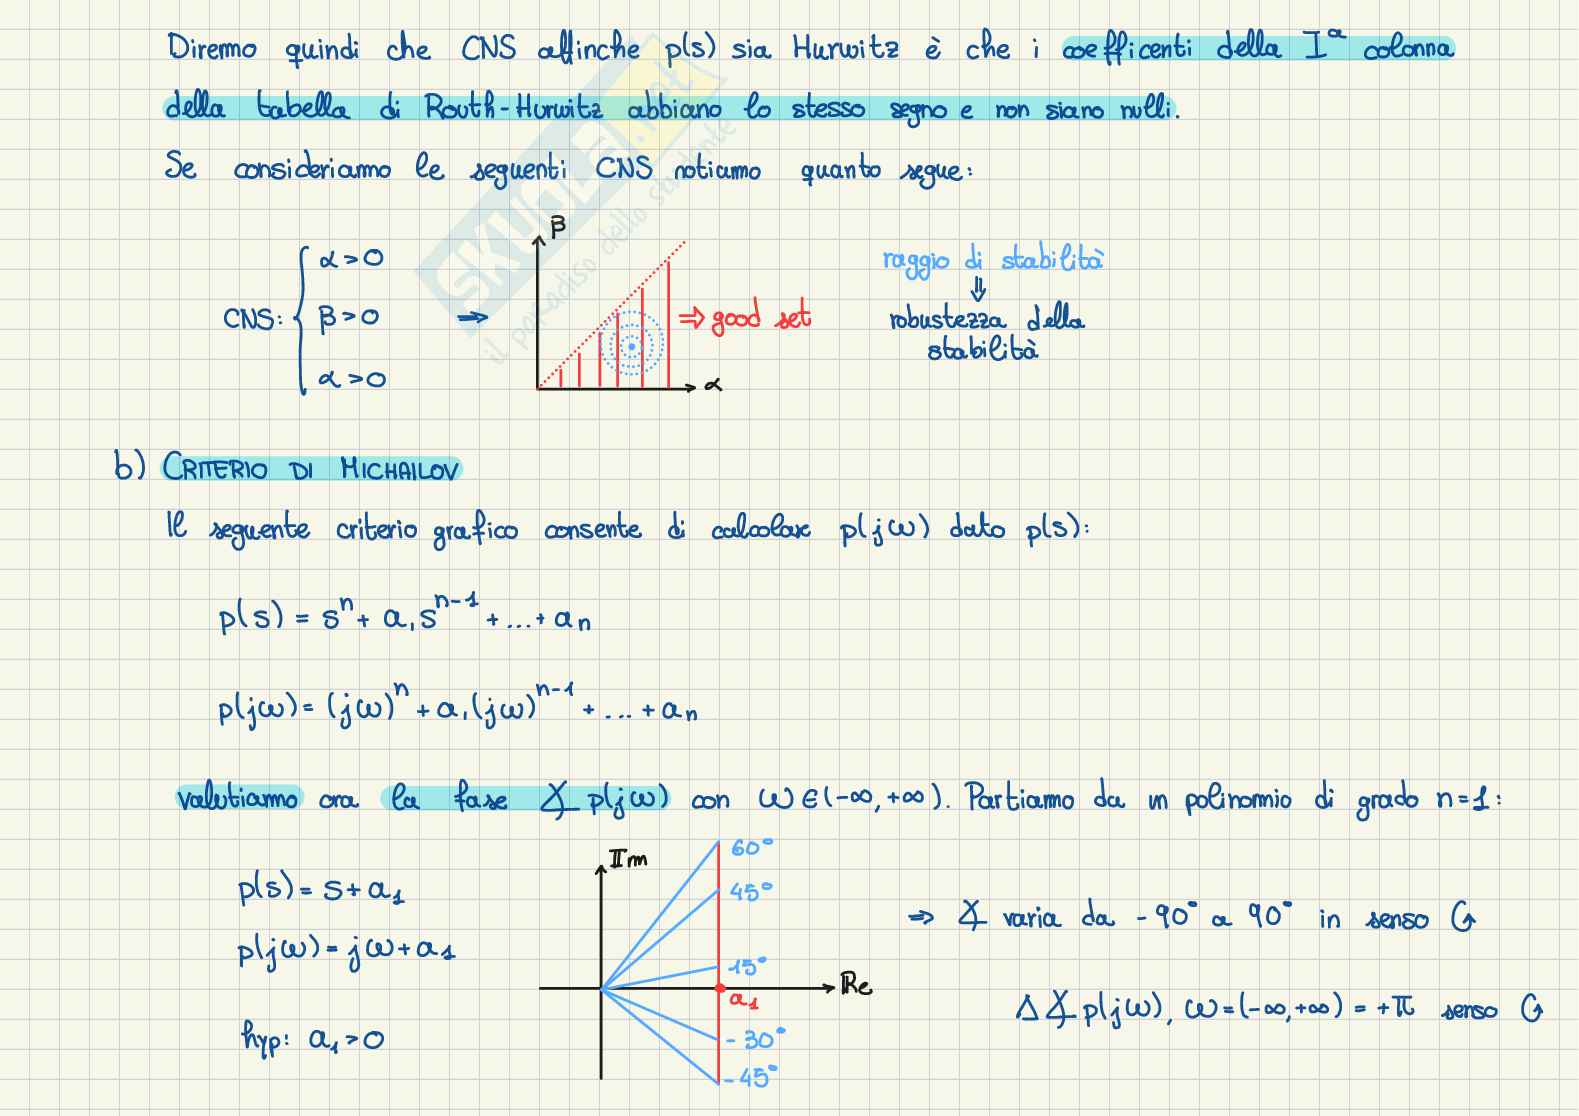 Diremo quindi che CNS affinche p(s) sia Hurwitz è che i coefficenti della Iª colonna
della tabella di Routh-Hurwitz abbiano lo stesso segno e non siano nulli.
Se consideriamo le seguenti CNS notiamo quanto segue:
CNS: { α>0
β>0
α>0
⇒
β
α
⇒ good set
raggio di stabilità
⇓
robustezza della
stabilità
SKUOLA.net
il paradiso dello studente
b) CRITERIO DI MICHAILOV
Il seguente criterio grafico consente di calcolare p(jω) dato p(s):
p(s) = sⁿ + a₁sⁿ⁻¹ + ... + aₙ
p(jω) = (jω)ⁿ + a₁(jω)ⁿ⁻¹ + ... + aₙ
valutiamo ora la fase ∡ p(jω) con ω∈(-∞,+∞). Partiamo da un polinomio di grado n=1:
p(s) = s + a₁
p(jω) = jω + a₁
hyp: a₁ > 0
Im
60°
45°
15°
Re
a₁
-30°
-45°
⇒ ∡ varia da -90° a 90° in senso ↺
Δ∡ p(jω), ω=(-∞,+∞) = +π senso ↺